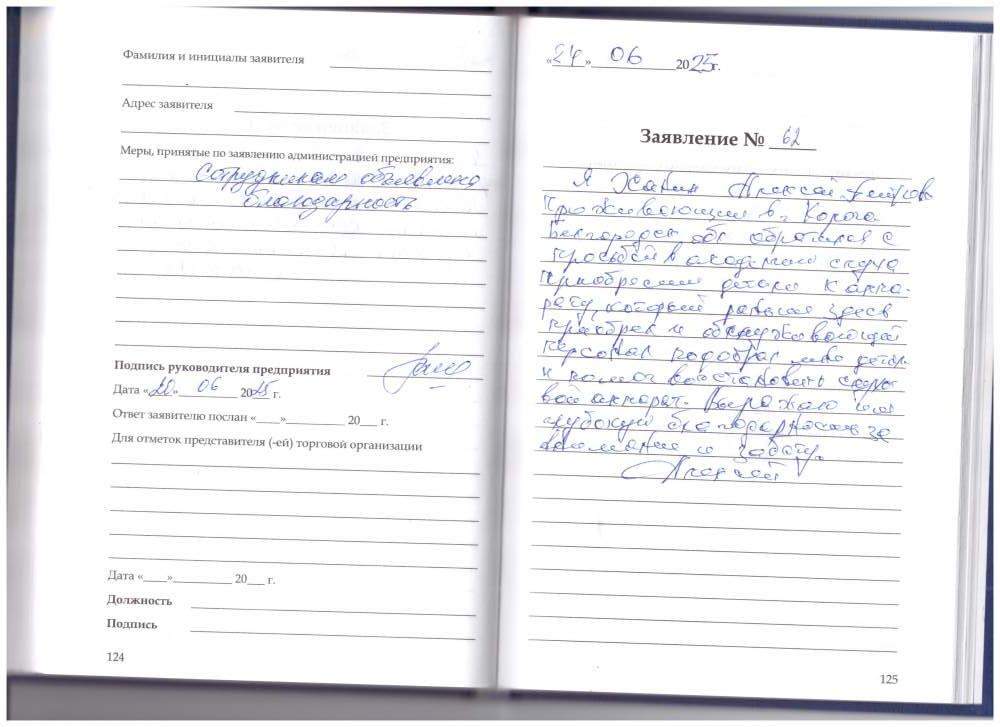 Фамилия и инициалы заявителя
Адрес заявителя
Меры, принятые по заявлению администрацией предприятия:
Сотрудникам объявлена
благодарность
Подпись руководителя предприятия
Дата «20» 06 2025 г.
Ответ заявителю послан «____»__________ 20___ г.
Для отметок представителя (-ей) торговой организации
Дата «____»__________ 20___ г.
Должность
Подпись
124
«24» 06 2025г.
Заявление № 62
Я Алексей
Проживающий в г. Короча
Белгородской обл обратился с
просьбой в академию слуха
приобрести детали к аппа-
рату, который раньше здесь
приобрел и обслуживающий
персонал подобрал мне детали
и помог восстановить слухо-
вой аппарат. Выражаю им
глубокую благодарность за
внимание и заботу.
125